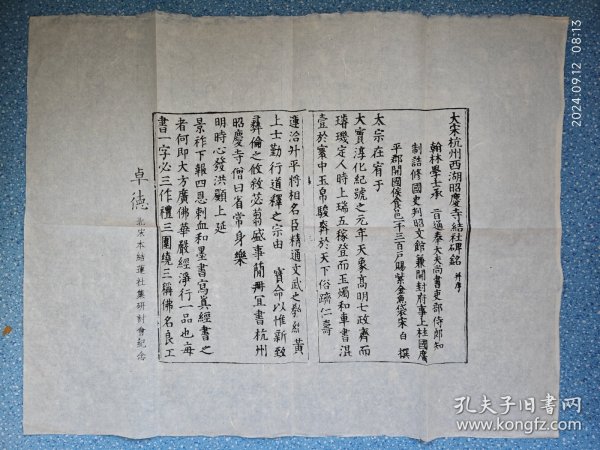 大宋杭州西湖昭慶寺結社碑銘 并序
翰林學士承旨通奉大夫尚書吏部侍郎知
制誥修國史判昭文館兼開封府事上柱國廣
平郡開國侯食邑一千三百戶賜紫金魚袋宋白撰
太宗在宥于
大寶淳化紀號之元年天象高明七政齊而
璿璣定人時上瑞五稼登而玉燭和車書混
壹於寰中玉帛駿奔於天下俗躋仁壽
運洽升平將相名臣精通文武之
上士勤行道釋之宗由 寶命以惟新致
彝倫之攸敘必蓊盛事簡冊宜書杭州
昭慶寺僧曰省常身樂
明時心發洪願上延
景祚下報四恩刺血和墨書寫真經書之
者何即大方廣佛華嚴經淨行一品也每
書一字必三作禮三圍繞三稱佛名良工
卓德
北宋本結蓮社集研討會紀念
2024.09.12 08:13
孔夫子旧书网
www.kongfz.com